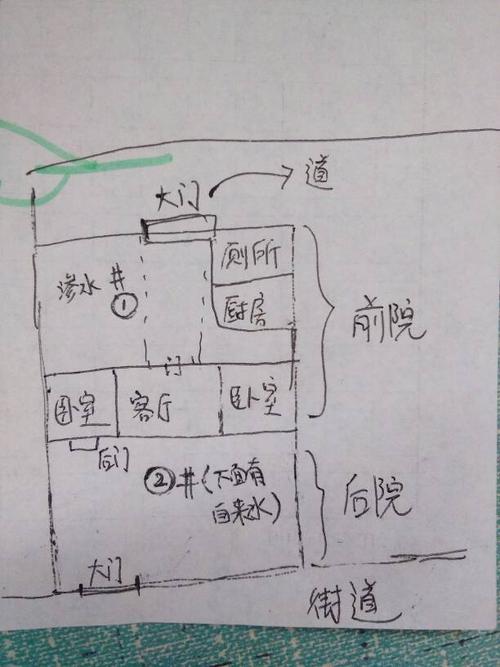 大门
道
厕所
渗水井
①
厨房
前院
门
卧室
客厅
卧室
后门
② 井(下面有
自来水)
后院
大门
街道